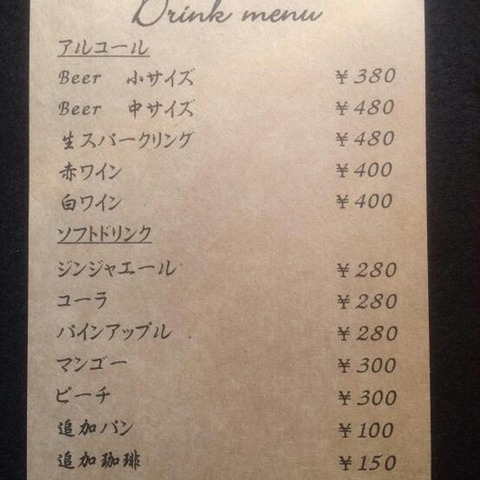 Drink menu
アルコール
Beer 小サイズ ￥380
Beer 中サイズ ￥480
生スパークリング ￥480
赤ワイン ￥400
白ワイン ￥400
ソフトドリンク
ジンジャエール ￥280
コーラ ￥280
パインアップル ￥280
マンゴー ￥300
ピーチ ￥300
追加パン ￥100
追加珈琲 ￥150